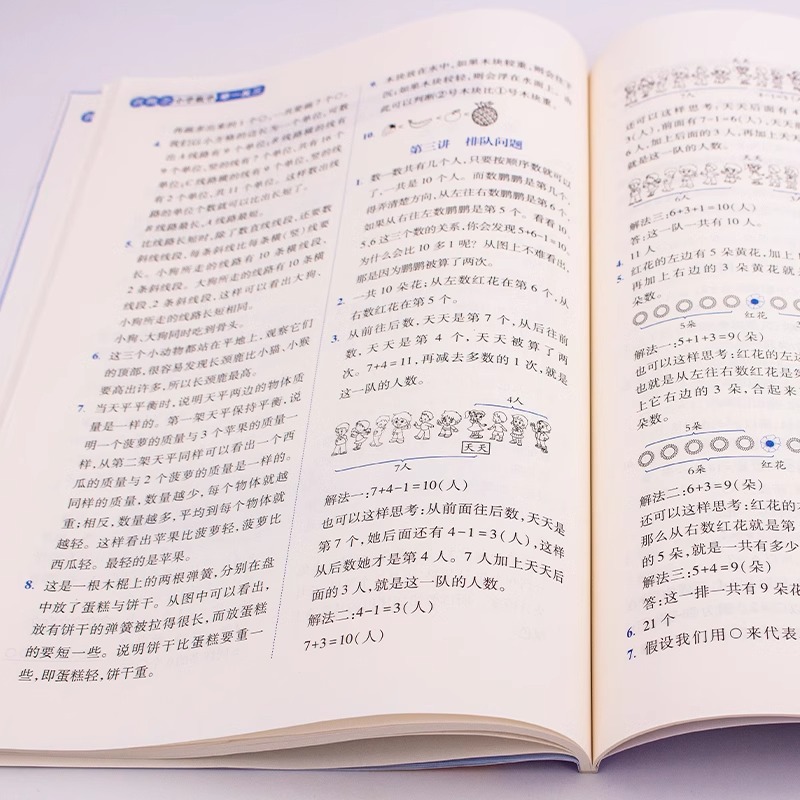 小学数学举一反三
再跳多出来的1个○,一共要跳7个○。
4. 我们以小方格的边长为一个单位,可数
出A线路有9个单位;B线路横的线有
9个单位,竖的线有7个单位,共有16个
单位;C线路横的线有9个单位,竖的线
有2个单位,共11个单位。这样数出线
路的单位个数就可以比出长短了。
B线路最长,A线路最短。
5. 比线路长短时,除了数直线线段,还要数
斜线线段,每条斜线比每条横(竖)线要
长。小狗所走的线路有10条横线段、
2条斜线段。大狗所走的线路有10条横
线段、2条斜线段,这样可以看出大狗、
小狗所走的线路长短相同。
小狗、大狗同时吃到骨头。
6. 这三个小动物都站在平地上,观察它们
的顶部,很容易发现长颈鹿比小猫、小猴
要高出许多,所以长颈鹿最高。
7. 当天平平衡时,说明天平两边的物体质
量是一样的。第一架天平保持平衡,说
明一个菠萝的质量与3个苹果的质量一
样,从第二架天平同样可以看出一个西
瓜的质量与2个菠萝的质量是一样的。
同样的质量,数量越少,每个物体就越
重;相反,数量越多,平均到每个物体就
越轻。这样看出苹果比菠萝轻,菠萝比
西瓜轻。最轻的是苹果。
8. 这是一根木棍上的两根弹簧,分别在盘
中放了蛋糕与饼干。从图中可以看出,
放有饼干的弹簧被拉得很长,而放蛋糕
的要短一些。说明饼干比蛋糕要重一
些,即蛋糕轻,饼干重。
9. 木块放在水中,如果木块较重,则会往下
沉;如果木块较轻,则会浮在水面上。由
此可以判断②号木块比①号木块重。
10.
第三讲 排队问题
1. 数一数共有几个人,只要按顺序数就可以
了,一共是10个人。而数鹏鹏是第几个,
得弄清楚方向,从左往右数鹏鹏是第6个,
如果从右往左数鹏鹏是第5个。看看10、
5、6这三个数的关系,你会发现5+6-1=10。
为什么会比10多1呢?从图上不难看出,
那是因为鹏鹏被算了两次。
2. 一共10朵花;从左数红花在第6个,从
右数红花在第5个。
3. 从前往后数,天天是第7个,从后往前
数,天天是第4个,天天被算了两
次。7+4=11,再减去多数的1次,就是
这一队的人数。
4人
天天
7人
解法一:7+4-1=10(人)
也可以这样思考:从前面往后数,天天是
第7个,她后面还有4-1=3(人),这样
从后数她才是第4人。7人加上天天后
面的3人,就是这一队的人数。
解法二:4-1=3(人)
7+3=10(人)
天天
还可以这样思考:天天后面有4
3(人),前面有7-1=6(人),天天
6人,加上后面的3人,再加上天天
就是这一队的人数。
天天
6人
解法三:6+3+1=10(人)
答:这一队一共有10人。
4. 11人
5. 红花的左边有5朵黄花,加上
再加上右边的3朵黄花就是
朵数。
5朵
红花
解法一:5+1+3=9(朵)
也可以这样思考:红花的左边
也就是从左往右数红花是第
上它右边的3朵,合起来
朵数。
5朵
6朵
红花
解法二:6+3=9(朵)
还可以这样思考:红花的
那么从右数红花就是第
的5朵,就是一共有多少
解法三:5+4=9(朵)
答:这一排一共有9朵花
6. 21个
7. 假设我们用○来代表